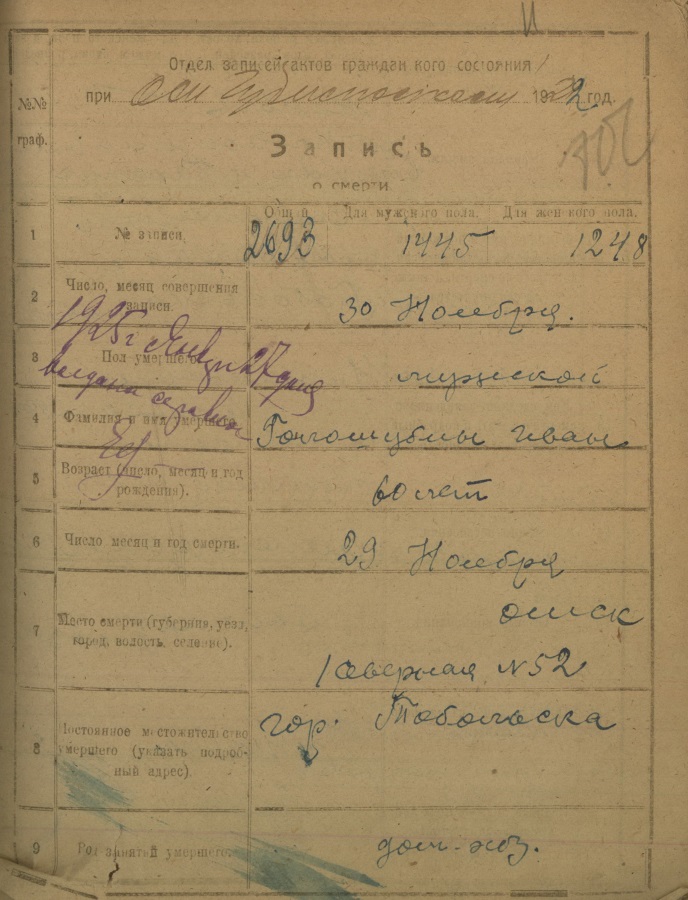 Отдел записей актов гражданского состояния
при Губисполкоме 1922 год.
Запись
о смерти.
№№ граф.
Общий Для мужского пола. Для женского пола.
1 № записи. 2693 1445 1248
2 Число, месяц совершения записи. 30 Ноября.
3 Пол умершего. мужской
4 Фамилия и имя умершего. Иван
1925 г. Января 27 дня
выдана справка
5 Возраст (число, месяц и год рождения). 60 лет
6 Число месяц и год смерти. 29 Ноября
7 Место смерти (губерния, уезд, город, волость, селение). Омск
Северная N 52
8 Постоянное местожительство умершего (указать подробный адрес). гор. Тобольска
9 Род занятий умершего. дом. хоз.